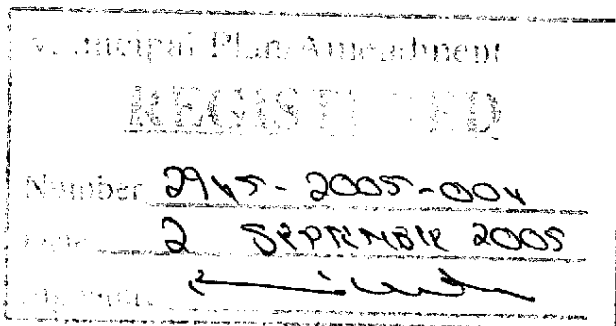 Municipal Plan/Amendment
REGISTERED
Number 2945-2005-004
Date 2 SEPTEMBER 2005
Signature